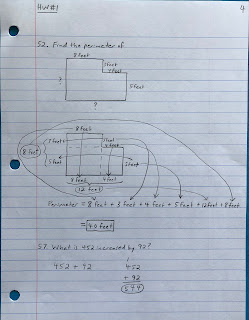 HW#1
4
52. Find the perimeter of
8 feet
3 feet
4 feet
5 feet
?
?
8 feet
3 feet
4 feet
8 feet
3 feet
5 feet
5 feet
8 feet
4 feet
(12 feet)
Perimeter = 8 feet + 3 feet + 4 feet + 5 feet + 12 feet + 8 feet
= 40 feet
57. What is 452 increased by 92?
452 + 92
1
452
+ 92
544